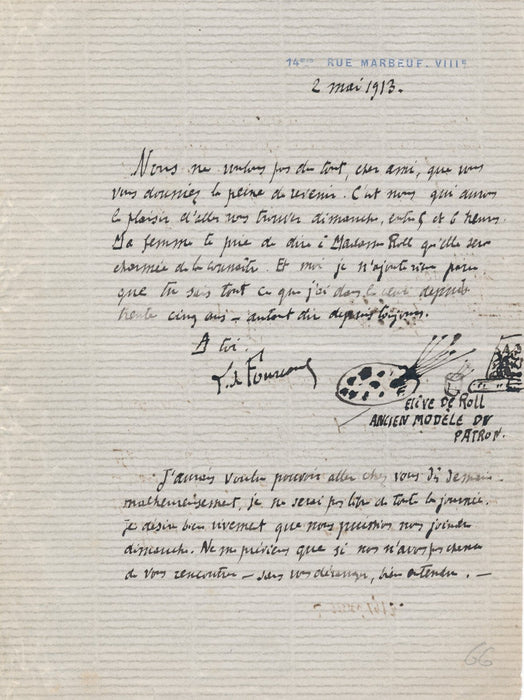 14 bis RUE MARBEUF. VIIIe
2 mai 1913.
Nous ne voulons pas du tout, cher ami, que vous
vous donniez la peine de revenir. C'est nous qui aurons
le plaisir d'aller vous trouver dimanche, entre 5 et 6 heures.
Ma femme te prie de dire à Madame Roll qu'elle sera
charmée de la connaître. Et moi je n'ajoute rien parce
que tu sais tout ce que j'ai dans le cœur depuis
trente cinq ans – autant dire depuis toujours.
A toi.
L. de Fourcaud
ELÈVE DE ROLL
ANCIEN MODÈLE DU
PATRON.
J'aurais voulu pouvoir aller chez vous dès demain
malheureusement, je ne serai pas libre de toute la journée.
Je désire bien vivement que nous puissions nous joindre
dimanche. Ne me préviens que si nous n'avons pas chance
de vous rencontrer – sans vous déranger, bien entendu. –
66